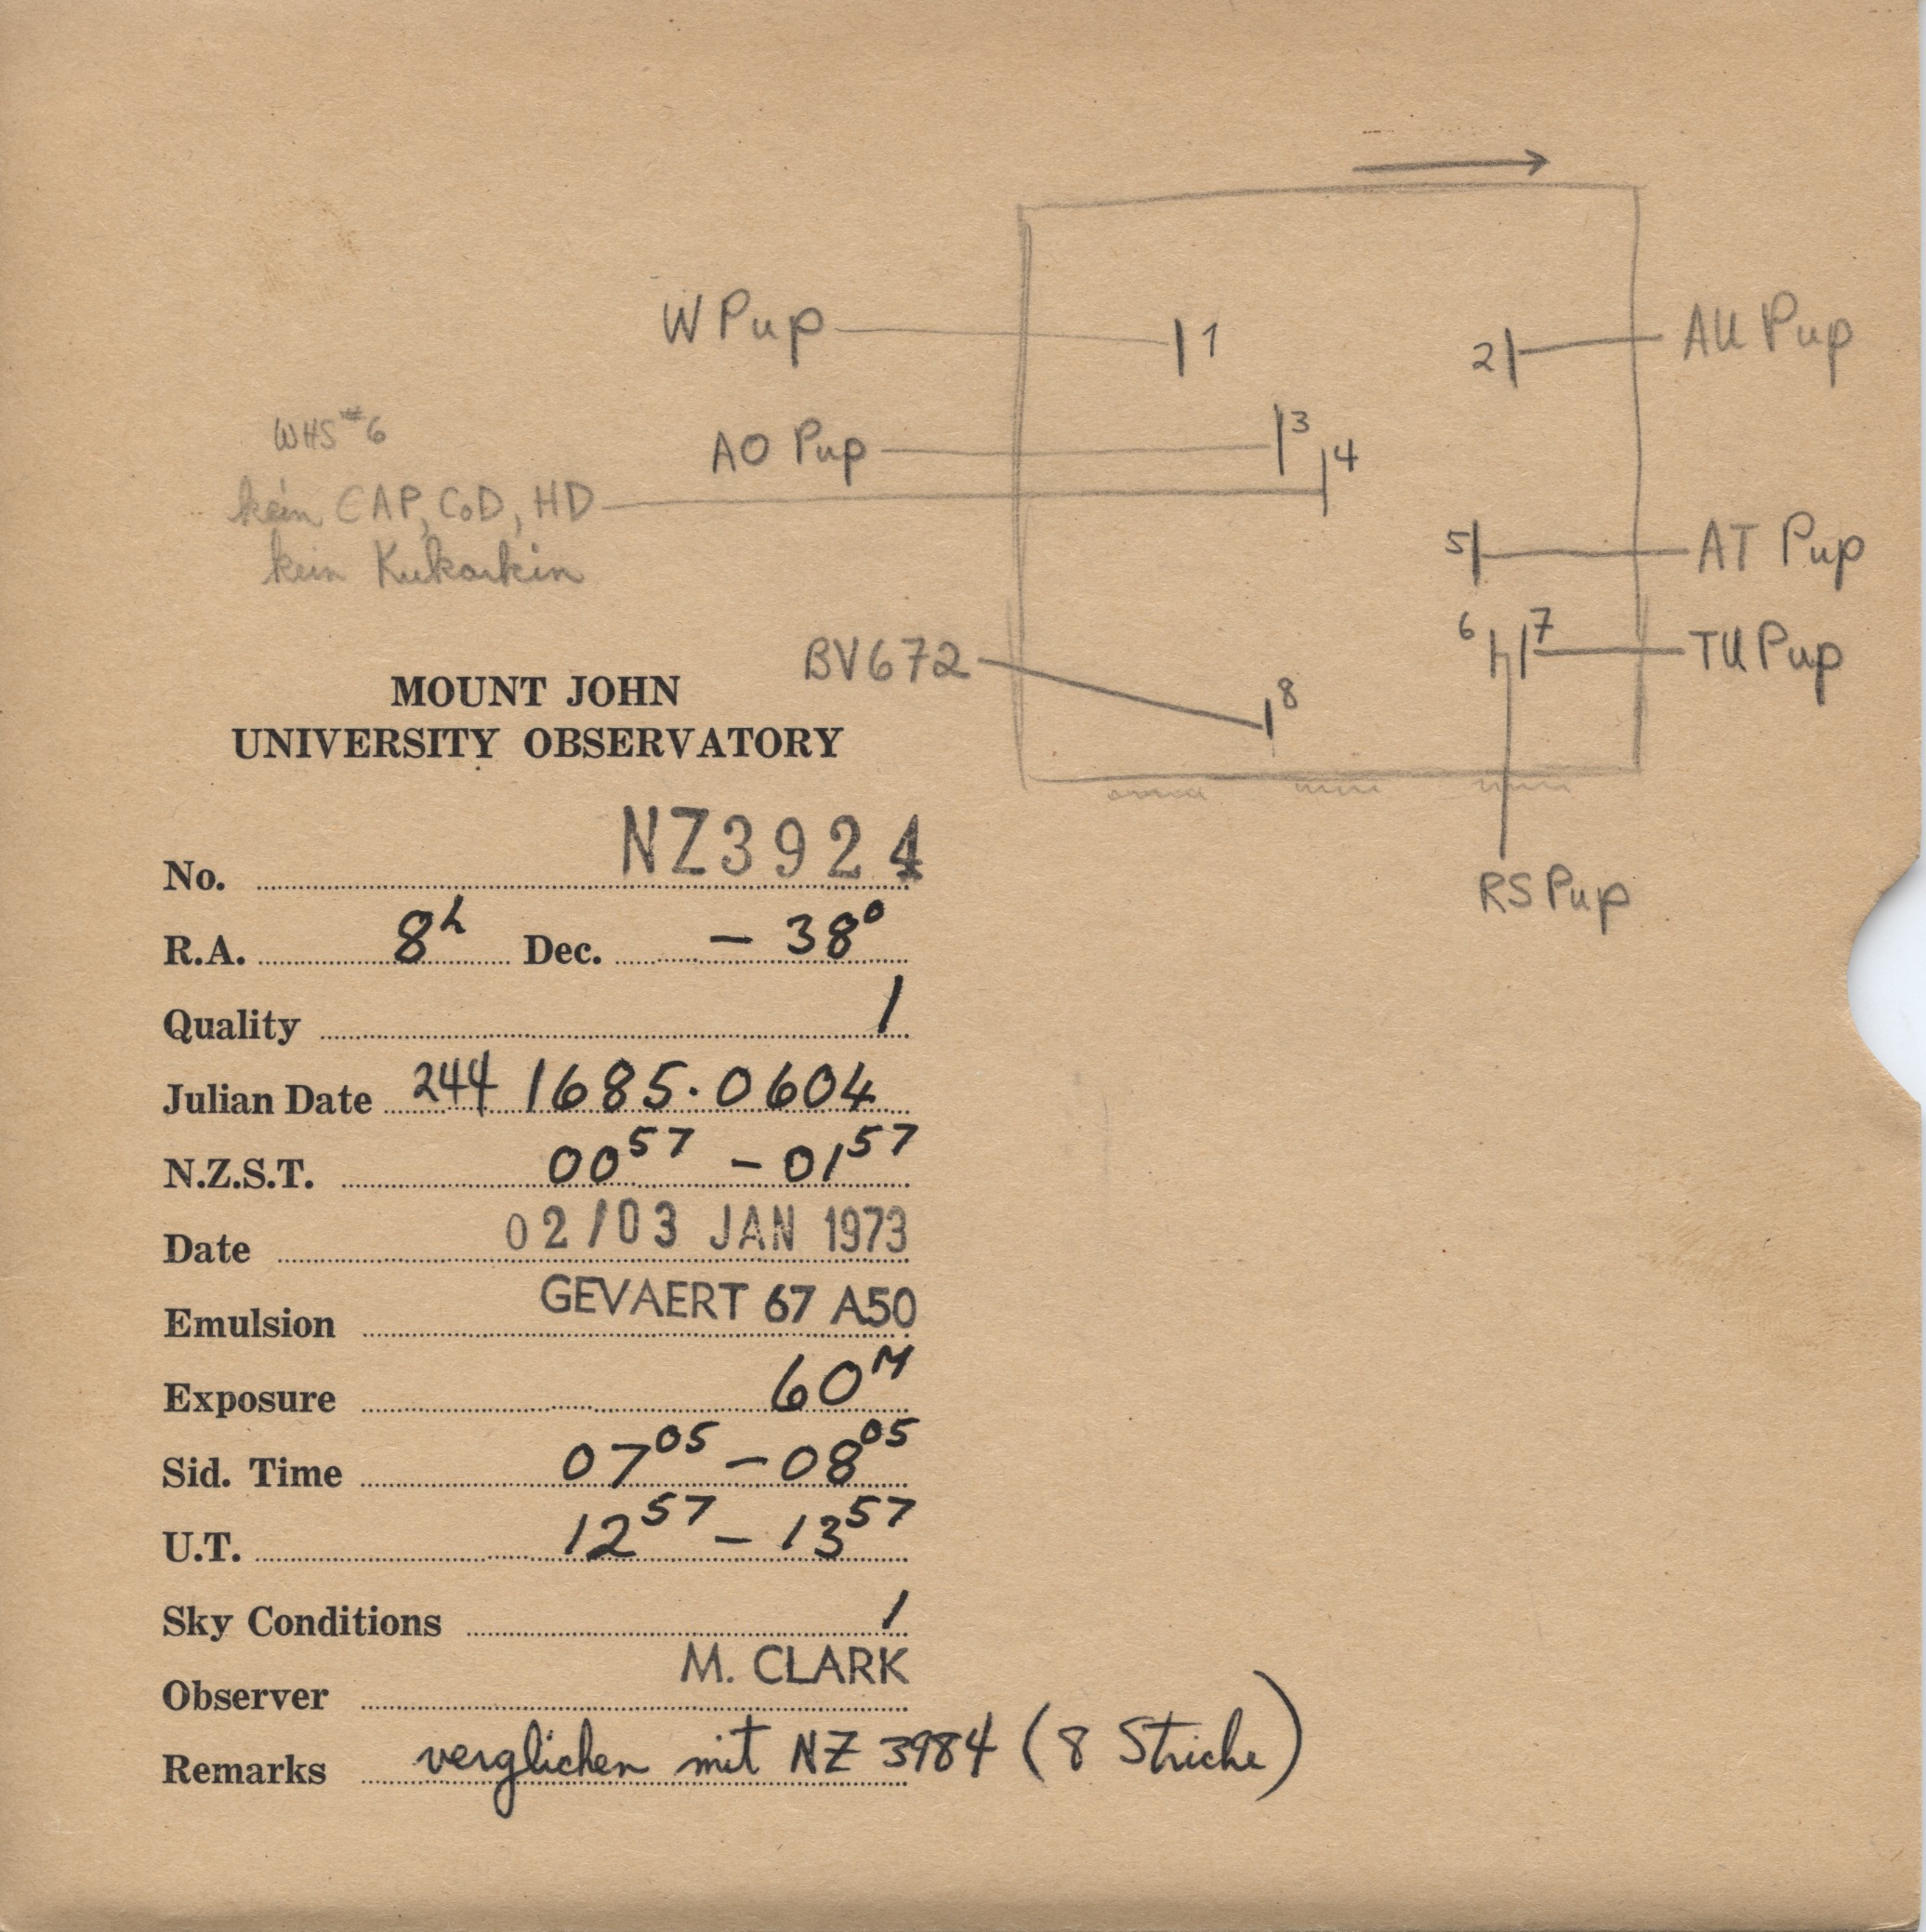 W Pup
1
2
AU Pup
WHS #6
AO Pup
3
4
kein CAP, CoD, HD
kein Kukarkin
5
AT Pup
6
7
TU Pup
BV672
8
RS Pup
MOUNT JOHN
UNIVERSITY OBSERVATORY
No. NZ3924
R.A. 8h Dec. – 38°
Quality 1
Julian Date 244 1685.0604
N.Z.S.T. 00 57 – 01 57
Date 02/03 JAN 1973
Emulsion GEVAERT 67 A50
Exposure 60M
Sid. Time 07 05 – 08 05
U.T. 12 57 – 13 57
Sky Conditions 1
Observer M. CLARK
Remarks verglichen mit NZ 3984 (8 Striche)